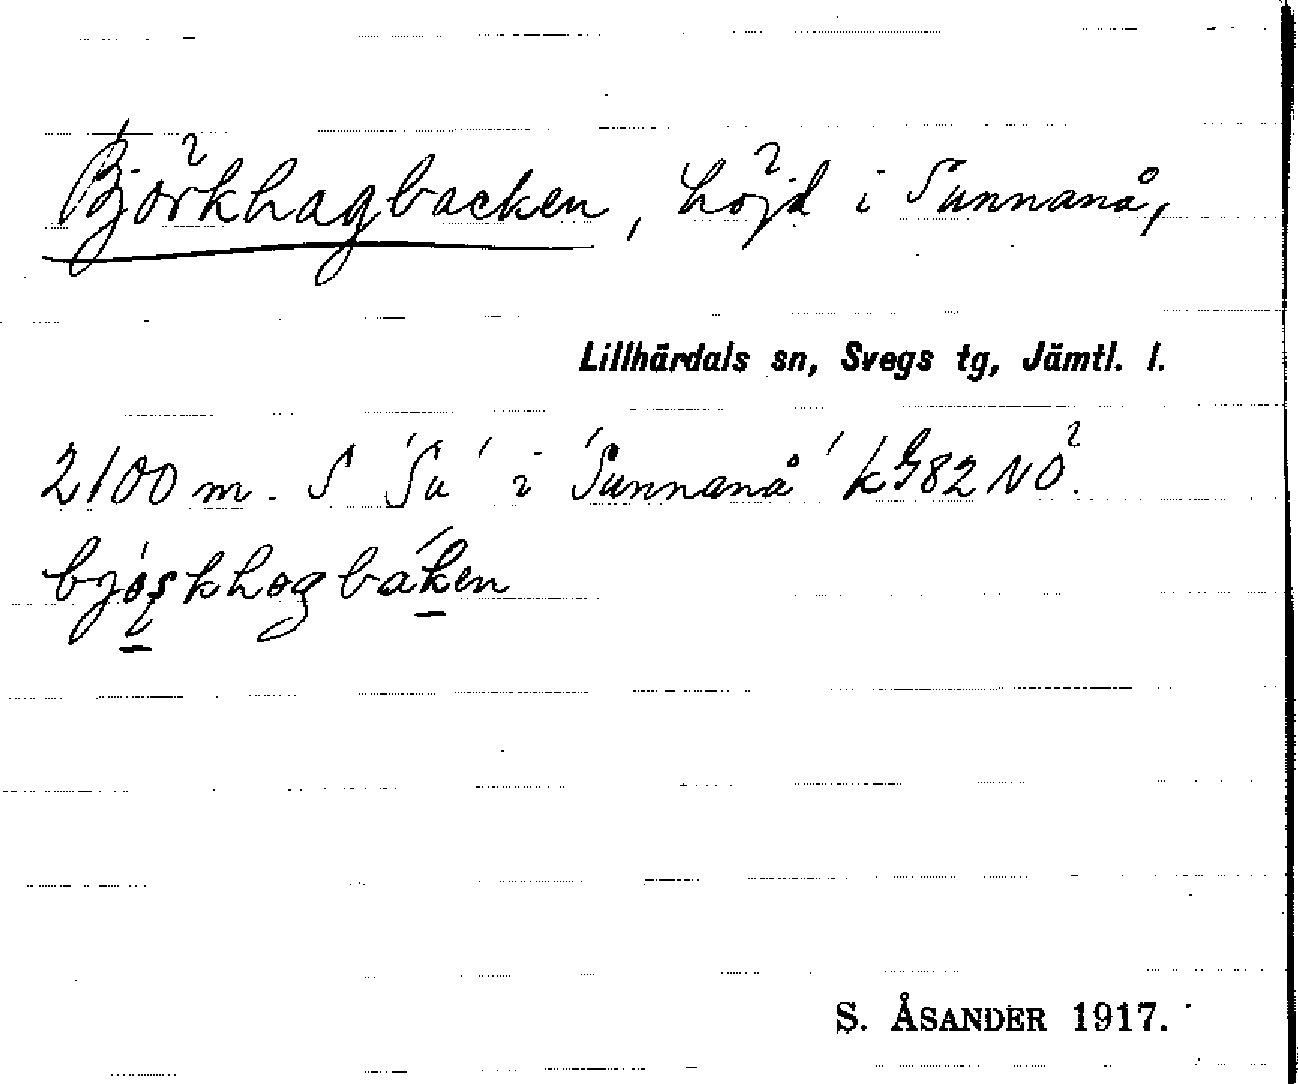 Björkhagbacken, höjd i Sunnanå,
Lillhärdals sn, Svegs tg, Jämtl. l.
2100 m. S 'Su' i 'Sunnanå' kG82NO.
bjȯşkhogbak̄en
S. ÅSANDER 1917.